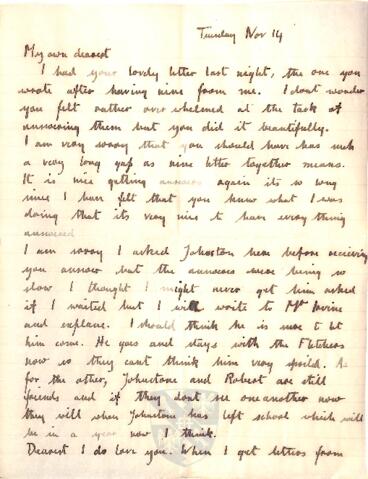 Tuesday Nov 14
My own dearest
I had your lovely letter last night, the one you
wrote after having nine from me. I dont wonder
you felt rather over whelmed at the task of
answering them but you did it beautifully.
I am very sorry that you should have has such
a very long gap as nine letter together means.
It is nice getting answers again its so long
since I have felt that you know what I was
doing that its very nice to have every thing
answered
I am sorry I asked Johnston here before receiving
you answer but the answers were being so
slow I thought I might never get him asked
if I waited but I will write to Mr Irvine
and explane. I should think he is sure to let
him come. He goes and stays with the Fletchers
now so they cant think him very spoild. As
for the other, Johnstone and Robert are still
friends and if they dont see one another now
they will when Johnston has left school which will
be in a year now I think.
Dearest I do love you. When I get letters from